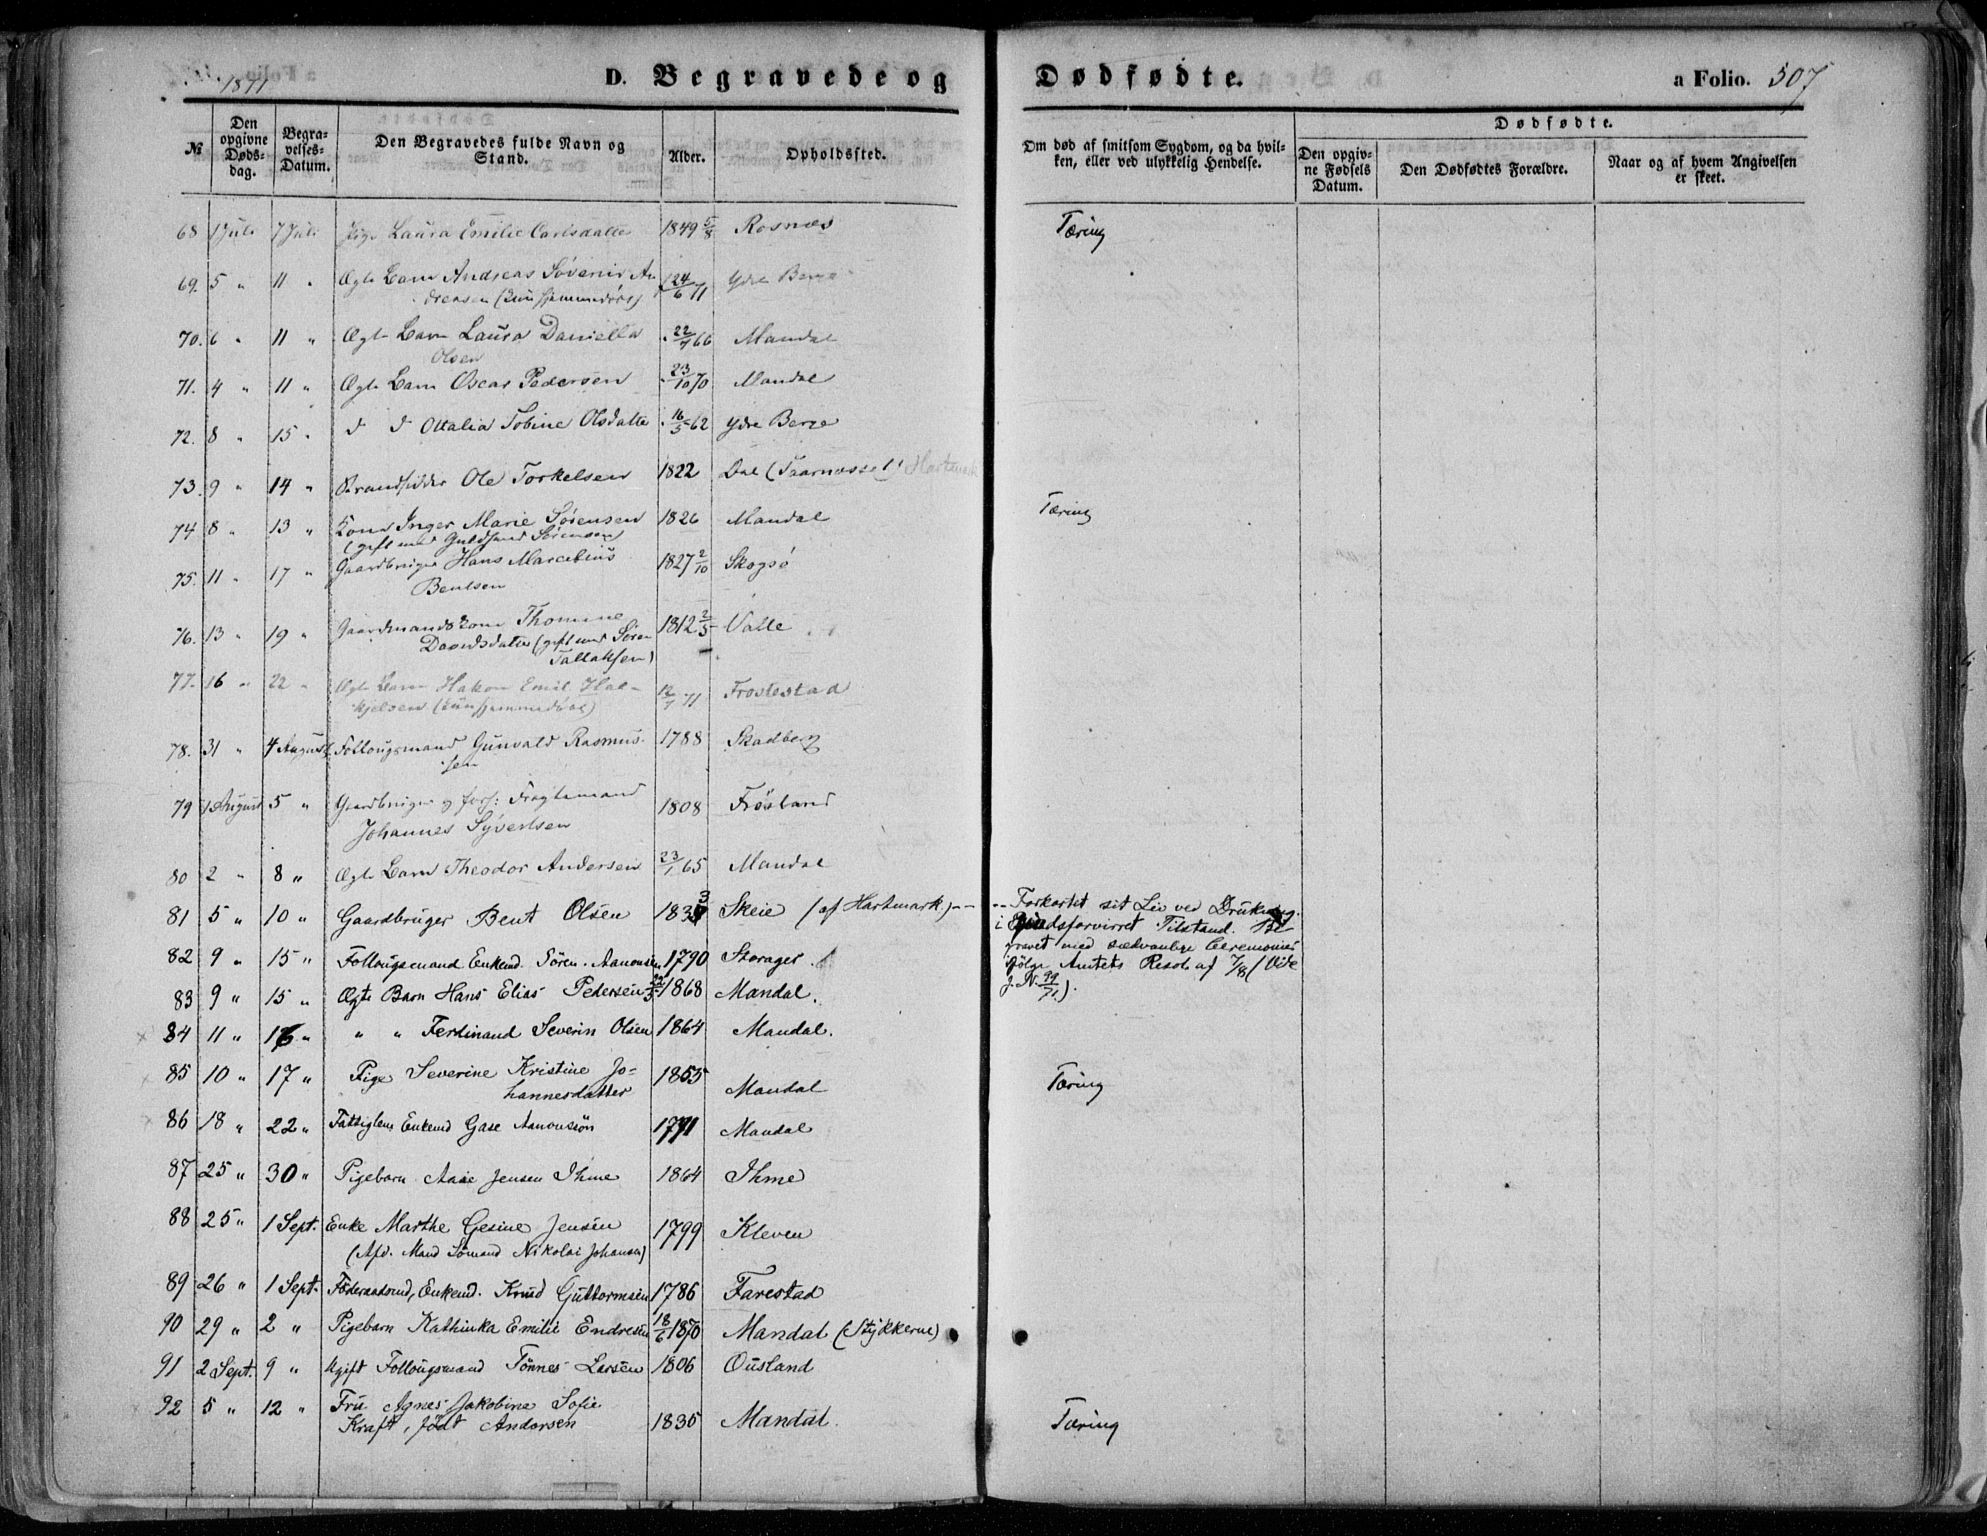 1871
D. Begravede og Dødfødte.
a Folio. 507
№
Den opgivne Døds-dag.
Begra-velses-Datum.
Den Begravedes fulde Navn og Stand.
Alder.
Opholdssted.
Om død af smitsom Sygdom, og da hvil-
ken, eller ved ulykkelig Hendelse.
Dødfødte.
Den opgiv-ne Fødsels Datum.
Den Dødfødtes Forældre.
Naar og af hvem Angivelsen er skeet.
68 1 Juli 7 Juli Pige Laura Emilie Carlsdatter 1849 5/8 Rosnæs Tæring
69. 5 " 11 " Ægte Barn Andreas Søverin An
dreasen (kun hjemmedøbt) 24/6 71 Ydre Berge
70. 6 " 11 " Ægte Barn Laura Daniella 22/7 66 Mandal
Olsen
71. 4 " 11 " Ægte Barn Oscar Pedersen 23/10 70 Mandal
72. 8 " 15 " d d Ottalia Tobine Olsdatter 16/5 62 Ydre Berge
73. 9 " 14 " Strandsidder Ole Torkelsen 1822 Dal (Taarnæsset) Hartmark
74 8 " 13 " Kone Inger Marie Sørensen 1826 Mandal Tæring
(gift med Guldsmed Sørensen)
75. 11 " 17 " Gaardbruger Hans Marcelius 1827 2/10 Skogsø
Bentsen
76. 13 " 19 " Gaardmandskone Thomine 1812 2/5 Valle
Davidsdatter (gift med Søren
Tallaksen)
77. 16 " 22 " Ægte Barn Hakon Emil Hal-
kjelsen (kun hjemmedøbt) 12/7 71 Frostestad
78. 31 " 4 August Follougsmand Gunvald Rasmus- 1788 Skadberg
sen
79 1 August 5 " Gaardbruger og forh: Fragtemand 1808 Frøsland
Johannes Syvertsen
80 2 " 8 " Ægte Barn Theodor Andersen 23/1 65 Mandal
81 5 " 10 " Gaardbruger Bent Olsen 1833 Skeie (af Hartmark) -- -- Forkortet sit Liv ved Drukning
i Sindsforvirret Tilstand. Be-
82 9 " 15 " Follougsmand Enkemd. Sören Aanonsen 1790 Storager gravet med sædvanlige Ceremonier
ifölge Amtets Resol. af 7/8 (Vide
83 9 " 15 " Ægte Barn Hans Elias Pedersen 1868 Mandal. J. N. 99/71).
84 11 " 16 " " " Ferdinand Severin Olsen 1864 Mandal.
85 10 " 17 " Pige Severine Kristine Jo- 1855
hannesdatter Mandal Tæring
86 18 " 22 " Fattiglem Enkemd Gase Aanonsön 1791 Mandal
87 25 " 30 " Pigebarn Aase Jensen Ihme 1864 Ihme
88 25 " 1 Sept. Enke Marthe Gesine Jensen 1799 Kleven
(Afd. Mand Sömand Nikolai Johansen)
89 26 " 1 Sept. Föderaadsmd, Enkemd. Knud Guttormsen 1786 Farestad
90 29 " 2 " Pigebarn Kathinka Emilie Endresen 18/6 1870 Mandal (Stykkerne)
91 2 Sept. 9 " Ugift Follougsmand Tönnes Larsen 1806 Ousland
92 5 " 12 " Fru Agnes Jakobine Sofie
Kraft, född Andersen 1835 Mandal. Tæring